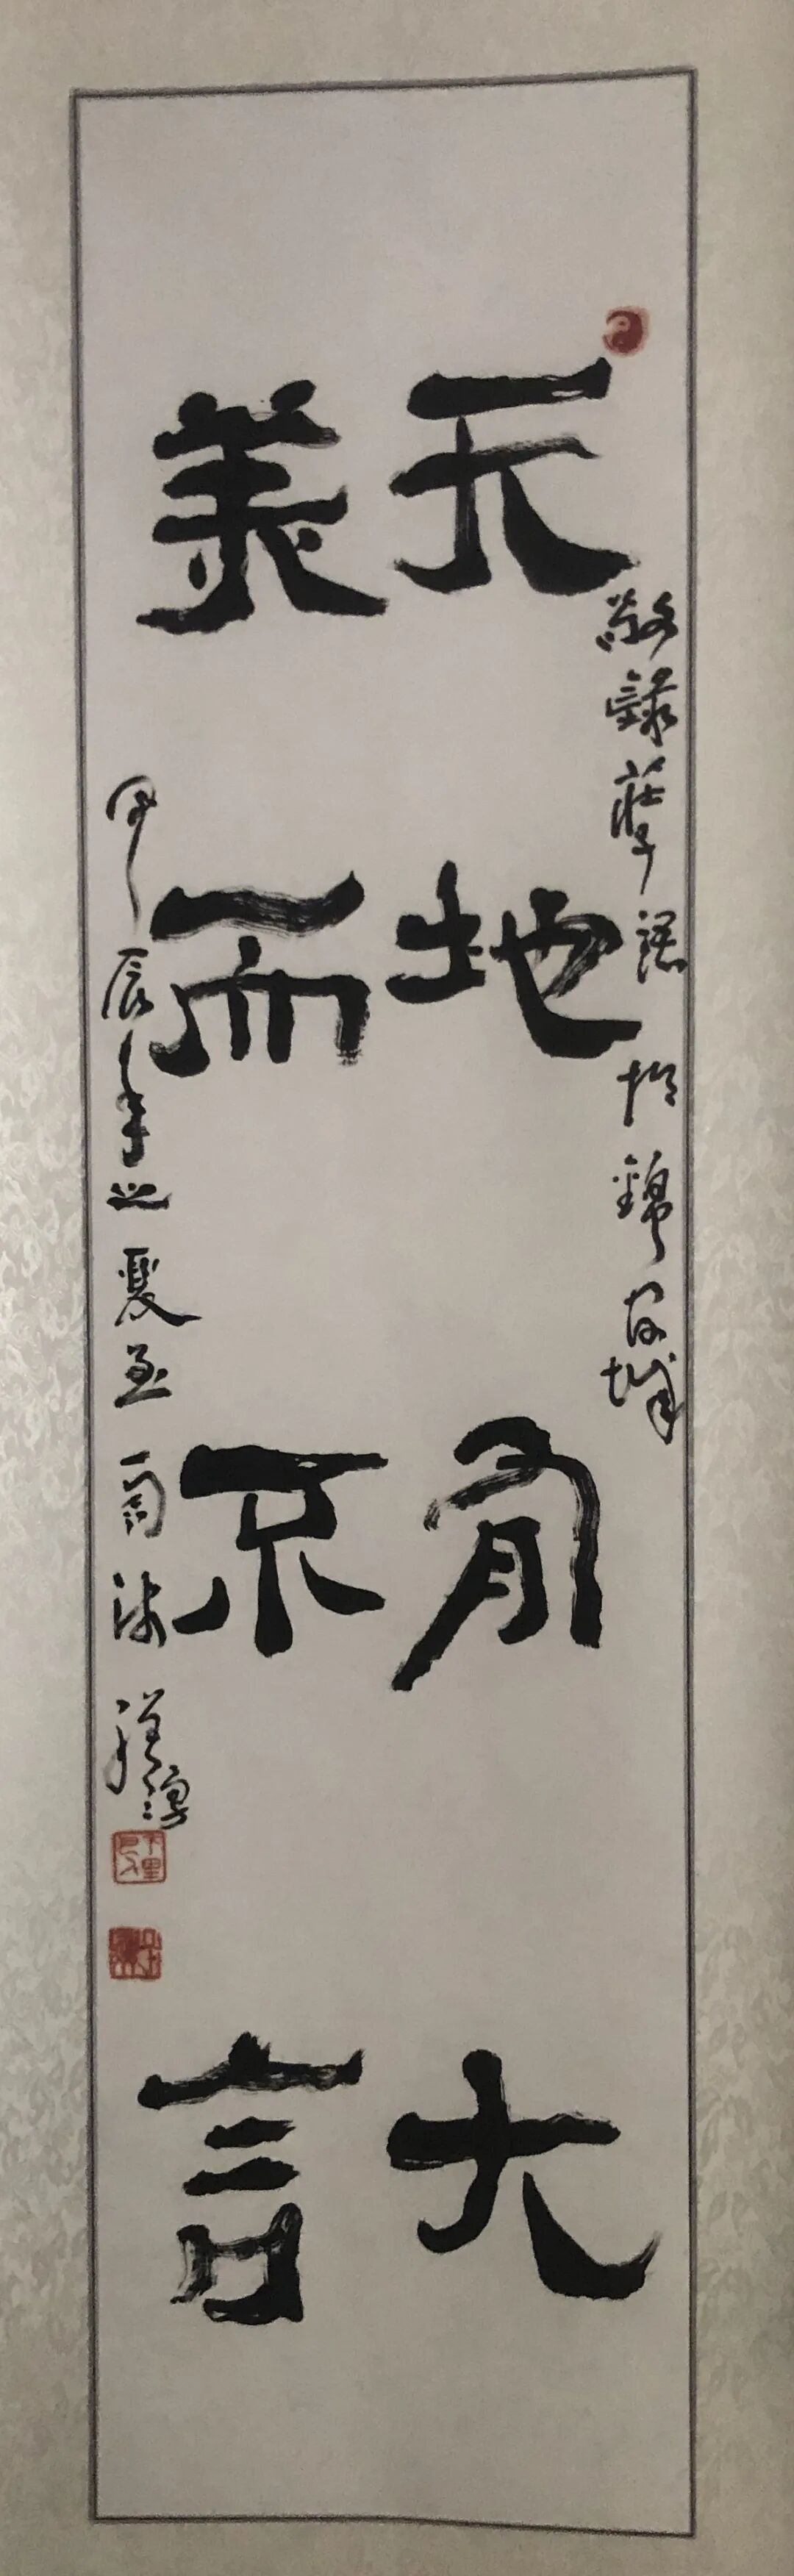 天地有大
美而不言
敬錄莊子語於錦官城
甲辰年之夏至